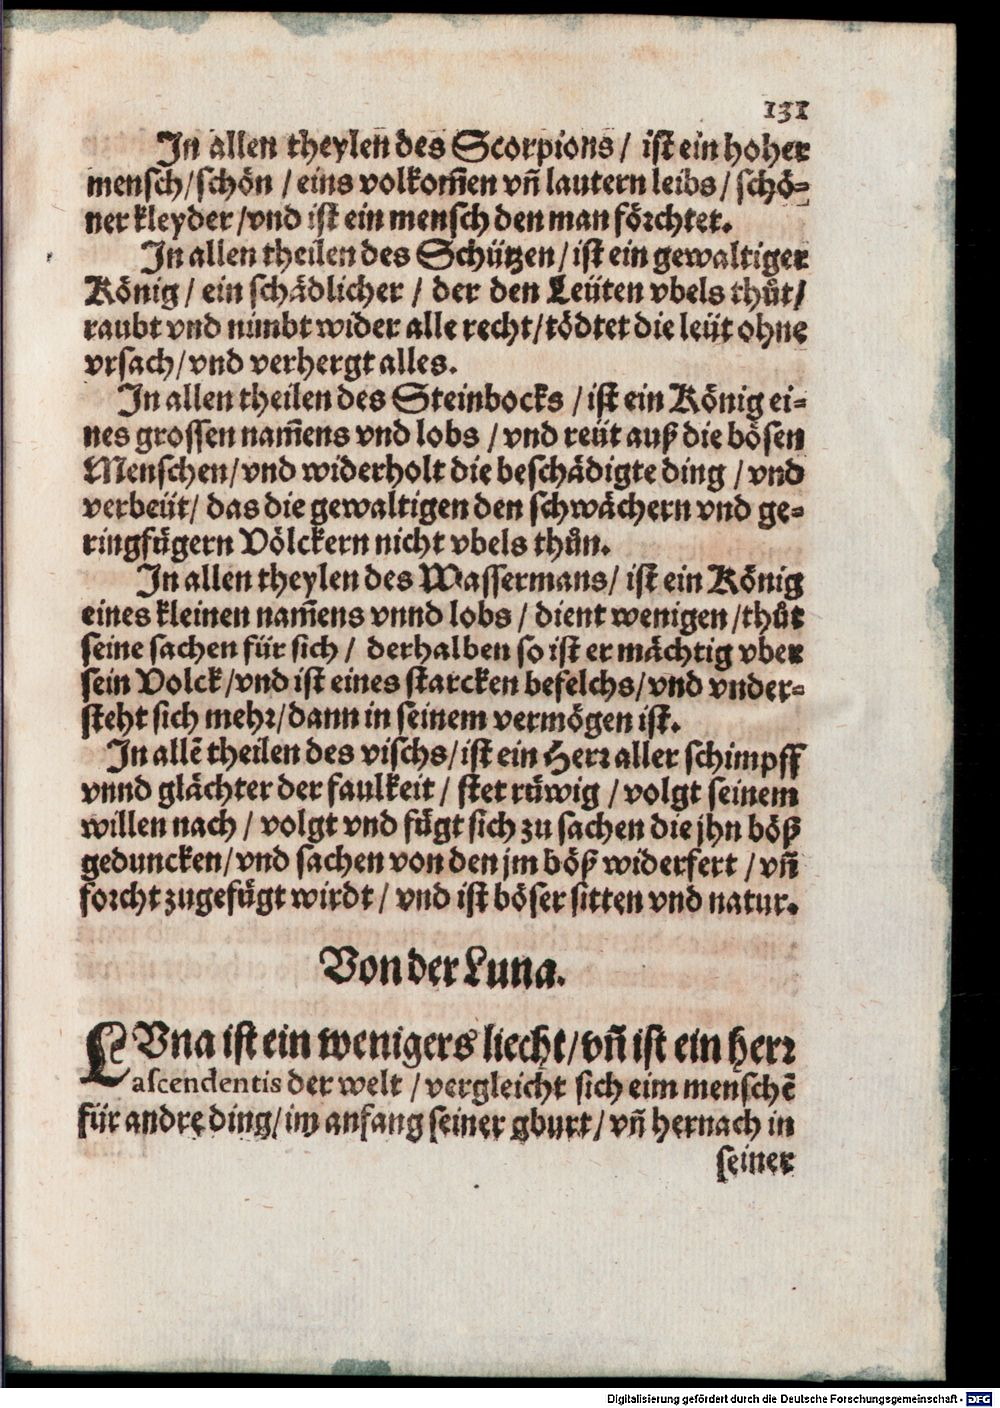 131
In allen theylen des Scorpions / ist ein hoher
mensch/schön / eins volkom̃en vñ lautern leibs / schö-
ner kleyder /vnd ist ein mensch den man förchtet.
In allen theilen des Schützen / ist ein gewaltiger
König / ein schädlicher / der den Leüten vbels thůt/
raubt vnd nimbt wider alle recht/tödtet die leüt ohne
vrsach/vnd verhergt alles.
In allen theilen des Steinbocks / ist ein König ei-
nes grossen nam̃ens vnd lobs / vnd reüt auß die bösen
Menschen/vnd widerholt die beschädigte ding / vnd
verbeüt/ das die gewaltigen den schwächern vnd ge-
ringfügern Völckern nicht vbels thůn.
In allen theylen des Wassermans/ ist ein König
eines kleinen nam̃ens vnnd lobs / dient wenigen /thůt
seine sachen für sich / derhalben so ist er mächtig vber
sein Volck /vnd ist eines starcken befelchs/vnd vnder-
steht sich mehr/dann in seinem vermögen ist.
In allẽ theilen des vischs/ist ein Herr aller schimpff
vnnd glächter der faulkeit / stet rüwig / volgt seinem
willen nach / volgt vnd fügt sich zu sachen die jhn böß
geduncken/vnd sachen von den jm böß widerfert / vñ
forcht zugefügt wirdt / vnd ist böser sitten vnd natur.
Von der Luna.
LVna ist ein wenigers liecht/vñ ist ein herr
ascendentis der welt / vergleicht sich eim menschẽ
für andre ding/im anfang seiner gburt/ vñ hernach in
seiner
Digitalisierung gefördert durch die Deutsche Forschungsgemeinschaft - DFG